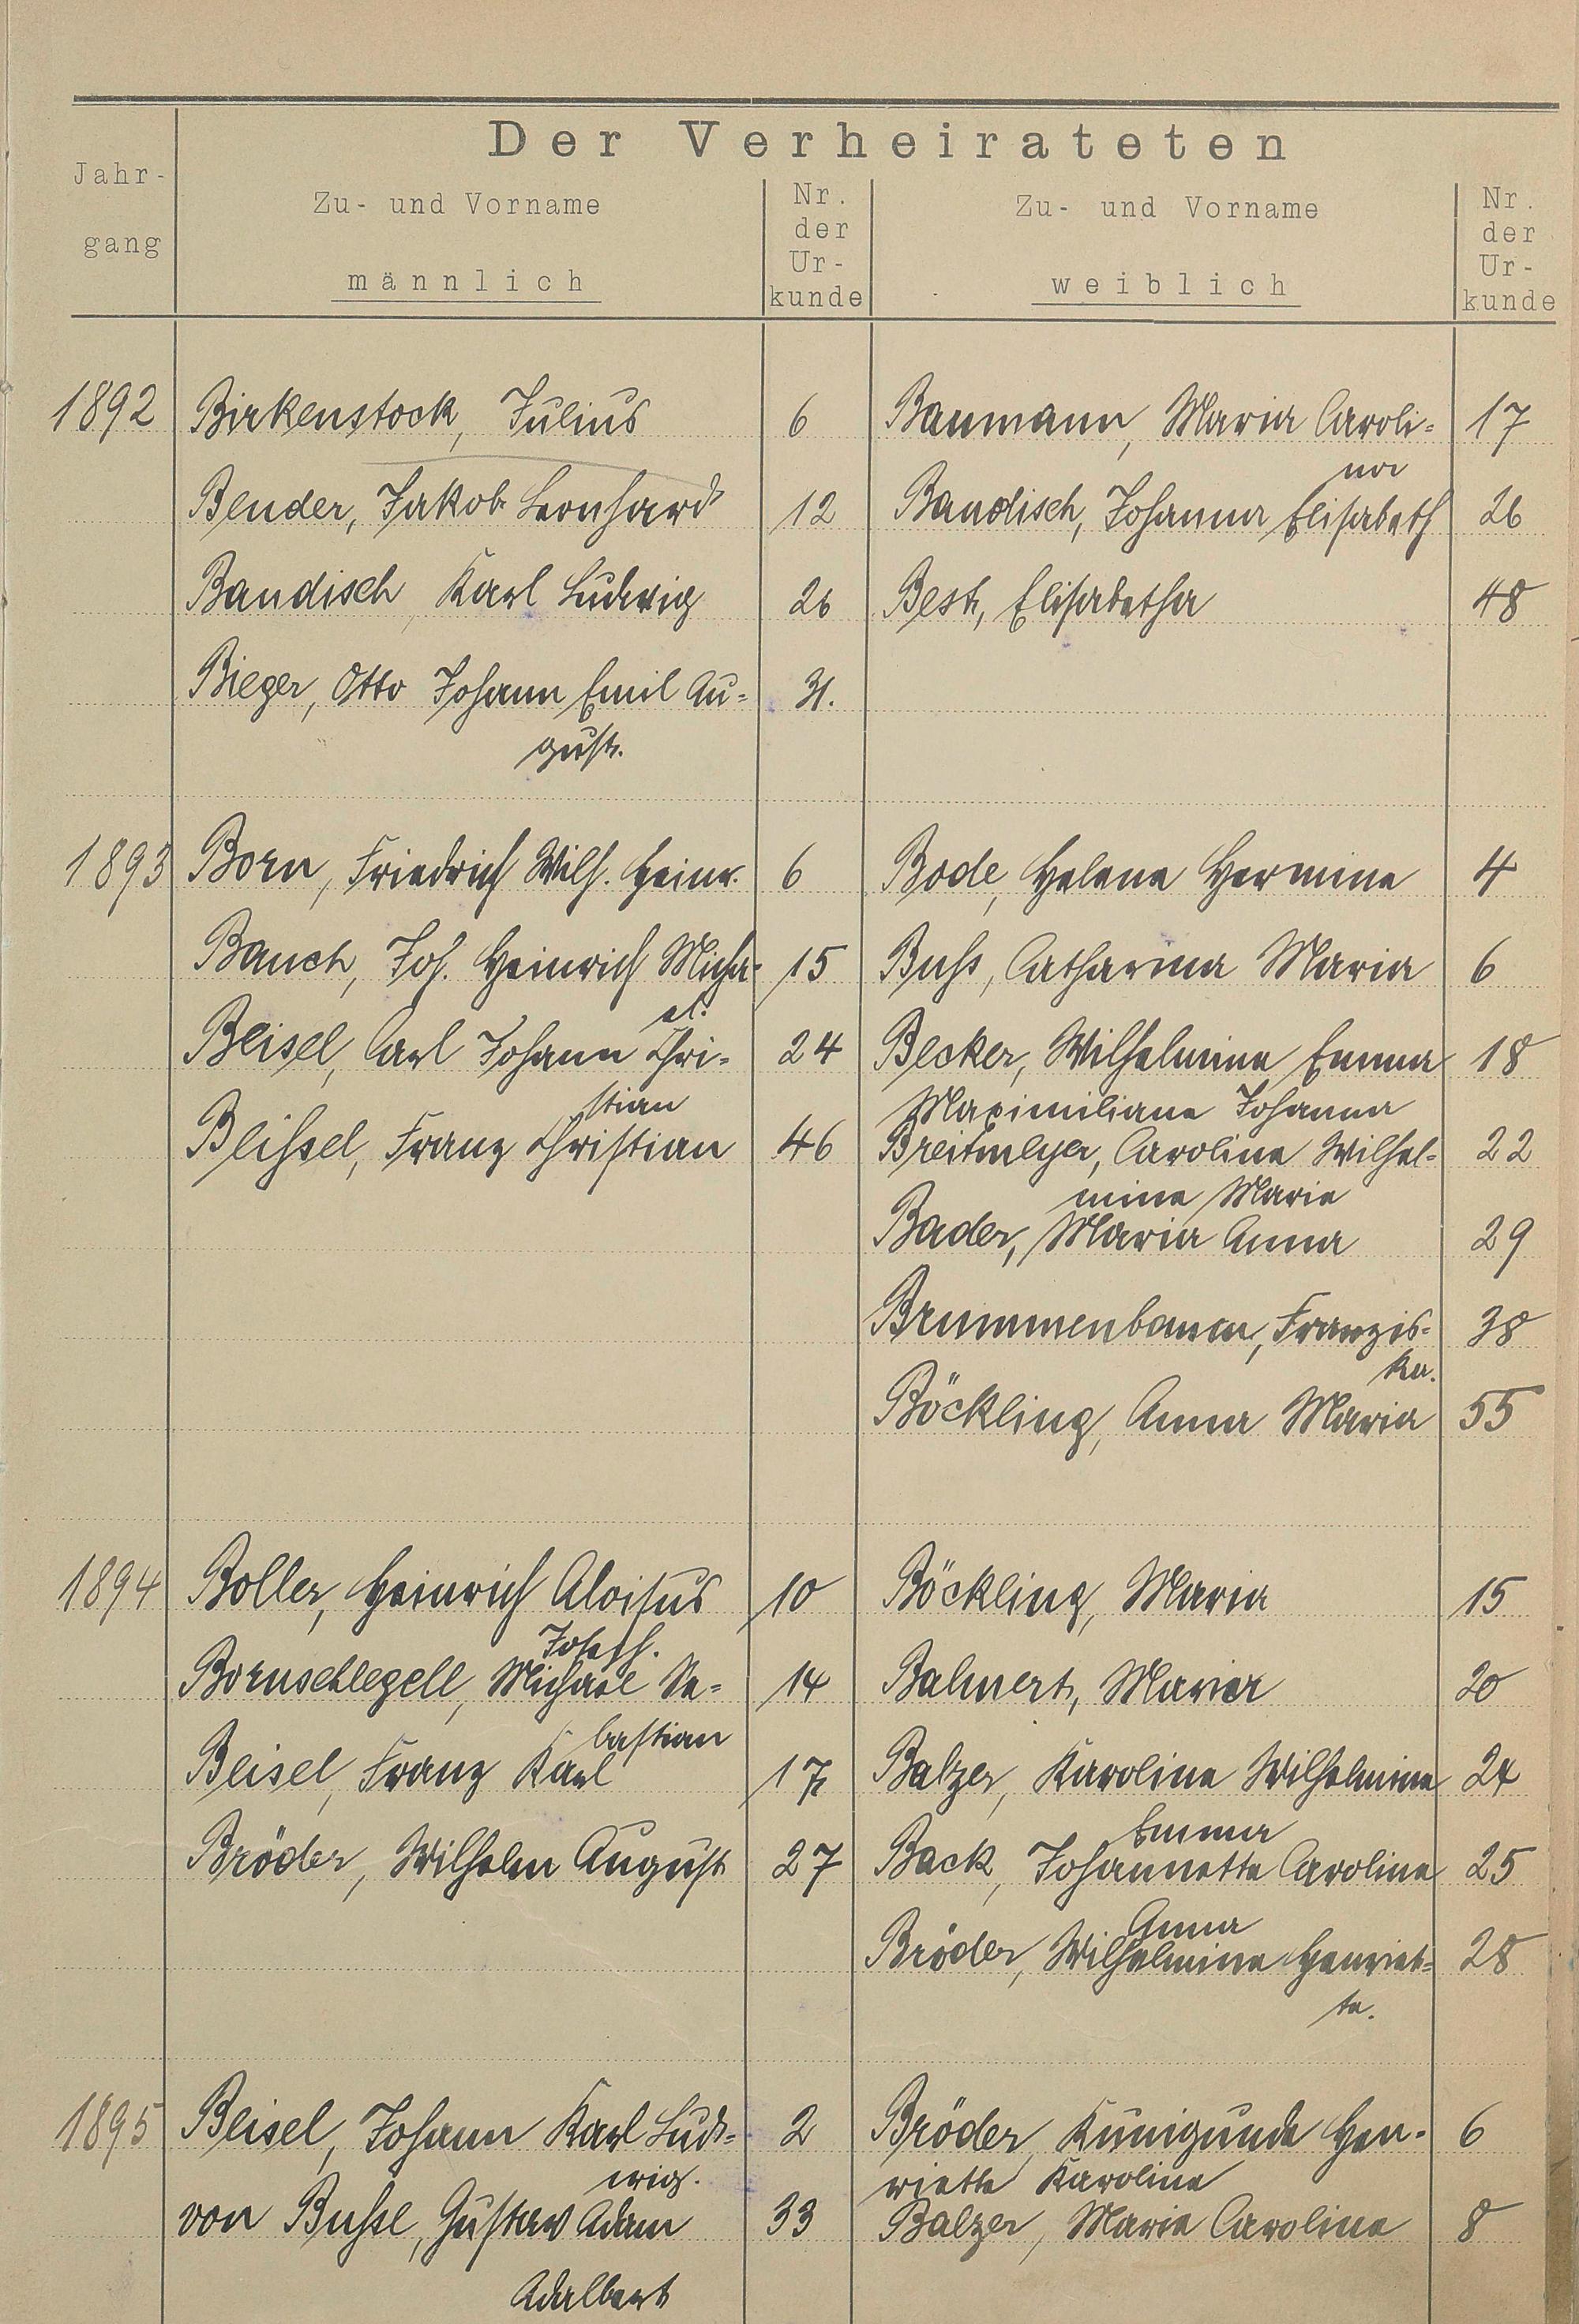 Der Verheirateten
Jahr-
gang
Zu- und Vorname
männlich
Nr.
der
Ur-
kunde
Zu- und Vorname
weiblich
Nr.
der
Ur-
kunde
1892 Birkenstock, Julius 6 Baumann, Maria Caroli= 17
na
Bender, Jakob Leonhard 12 Baudisch, Johanna Elisabeth 26
Baudisch, Karl Ludwig 26 Best, Elisabetha 48
Bieger, Otto Johann Emil Au= 31.
gust.
1893 Born, Friedrich Wilh. Heinr. 6 Bode, Helene Hermine 4
Bauch, Joh. Heinrich Micha- 15 Buhs, Catharina Maria 6
el.
Beisel, Carl Johann Chri= 24 Becker, Wilhelmine Emma 18
stian Maximiliane Johanna
Beihsel, Franz Christian 46 Breitmeyer, Caroline Wilhel= 22
mine Marie
Bader, Maria Anna 29
Brummenbaum, Franzis= 38
ka.
Böckling, Anna Maria 55
1894 Boller, Heinrich Aloisus 10 Böckling, Maria 15
Joseph.
Bornschlegell, Michael Se= 14 Balmert, Maria 20
bastian
Beisel, Franz Karl 17 Balzer, Karoline Wilhelmine 24
Emma
Bröder, Wilhelm August 27 Back, Johannette Caroline 25
Anna
Bröder, Wilhelmine Henriet= 28
te.
1895 Beisel, Johann Karl Lud= 2 Bröder, Kunigunde Hen- 6
wig. riette Karoline
von Buhse, Gustav Adam 33 Balzer, Marie Caroline 8
Adalbert